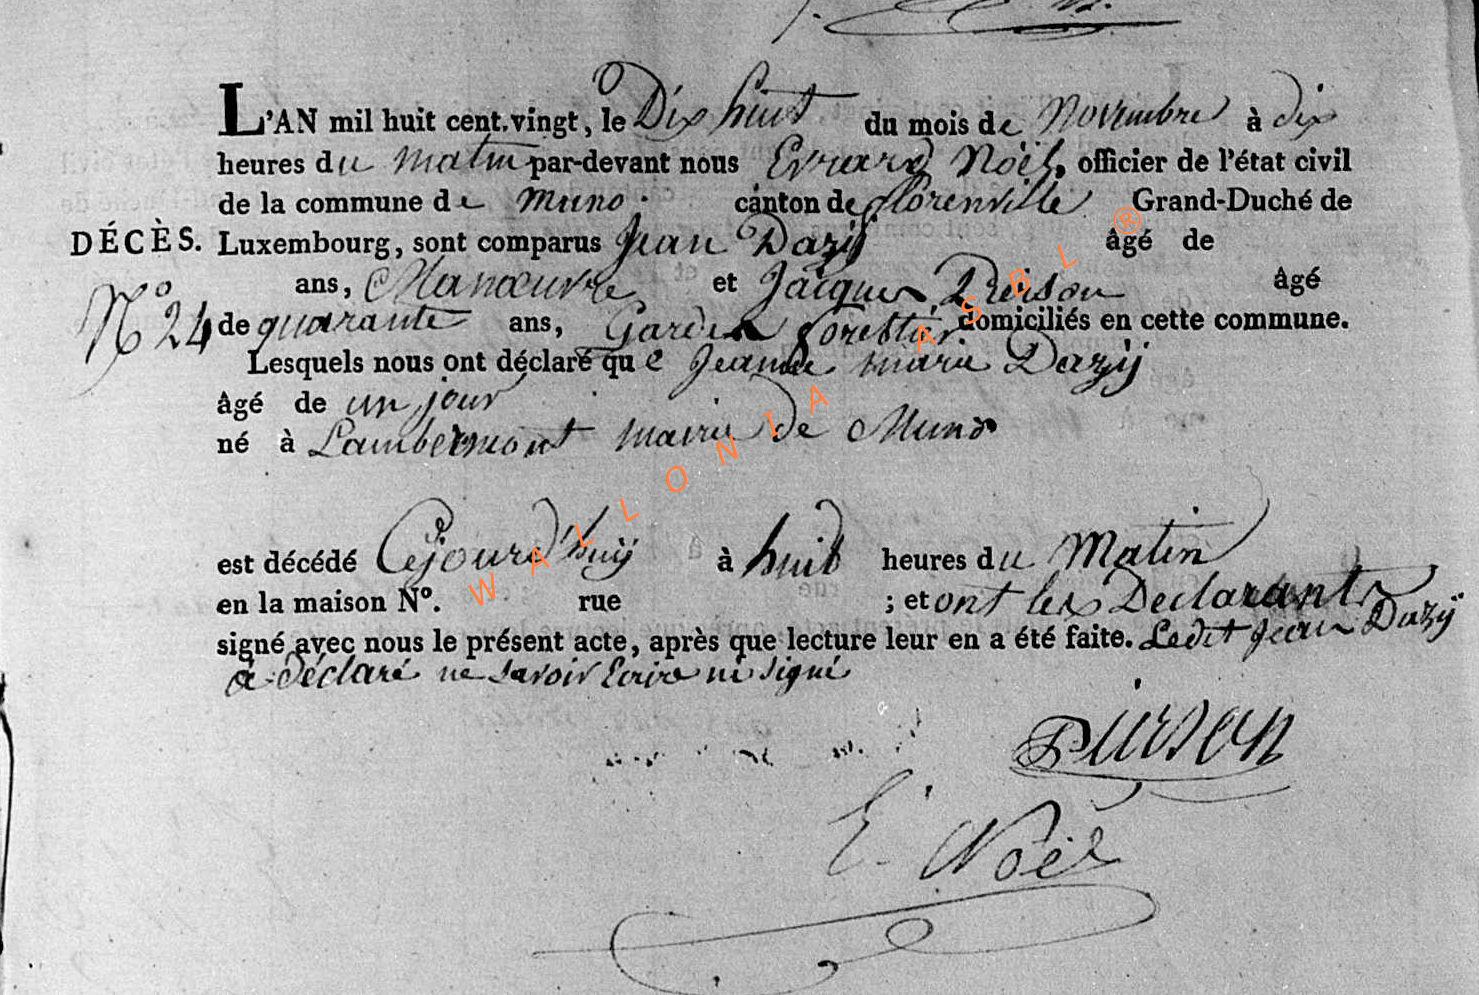 L'AN mil huit cent.vingt, le Dix huit du mois de Novembre à dix
heures du matin par-devant nous Evrard Noël, officier de l'état civil
de la commune de Muno. canton de florenville Grand-Duché de
DÉCÈS. Luxembourg, sont comparus Jean Dazÿ âgé de
ans, Manœuvre et Jacques Peirson âgé
N° 24 de quarante ans, Garde forestier domiciliés en cette commune.
Lesquels nous ont déclaré que Jeanne marie Dazÿ
âgé de un jour
né à Lambermont mairie de Muno
est décédé Cejourd'huÿ à huit heures du Matin
en la maison N°. rue ; et ont les Declarants
signé avec nous le présent acte, après que lecture leur en a été faite. Ledit Jean Dazÿ
a déclaré ne savoir Ecrire ni signé
Pierson
E. Noël
WALLONIA ASBL ®